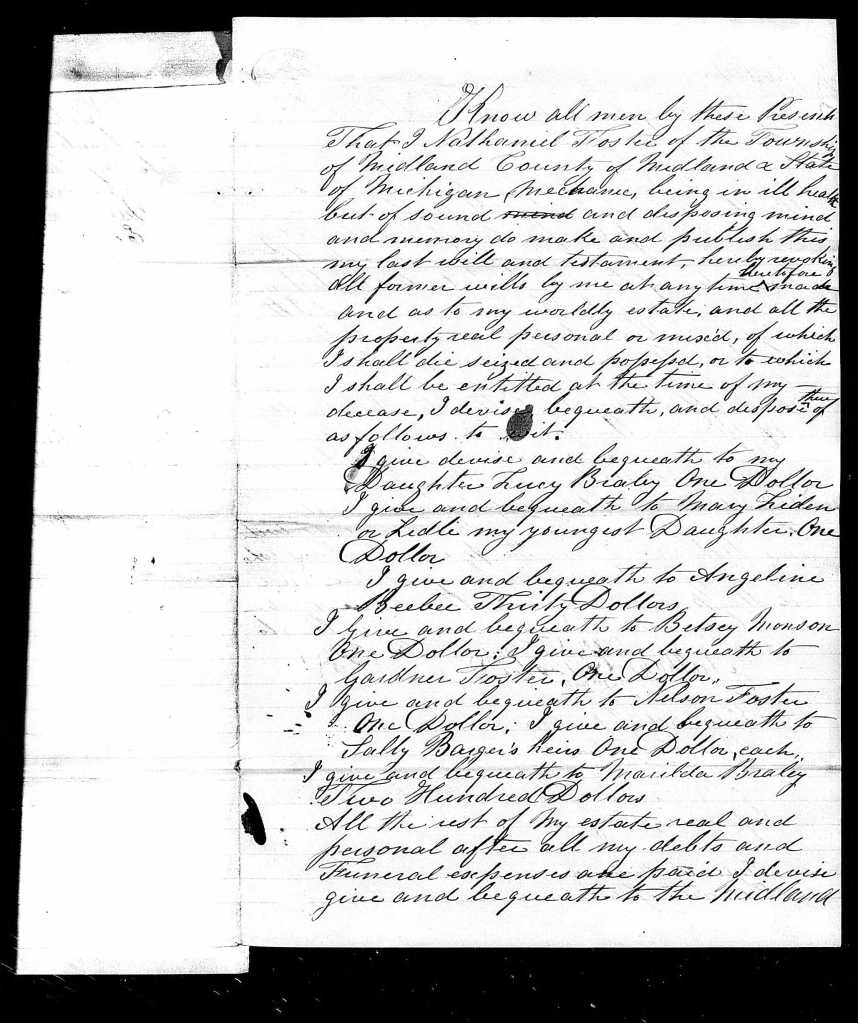 Know all men by these Presents
That I Nathaniel Foster of the Township
of Midland County of Midland & State
of Michigan, Mechanic, being in ill health
but of sound mind and disposing mind
and memory do make and publish this
my last will and testament, hereby revoking
all former wills by me at any time heretofore made
and as to my worldly estate, and all the
property real personal or mixed, of which
I shall die seized and possessed, or to which
I shall be entitled at the time of my
decease, I devise, bequeath, and dispose there of
as follows to wit.
I give devise and bequeath to my
Daughter Lucy Braley One Dollar
I give and bequeath to Mary Liden
or Ledle my youngest Daughter, One
Dollar
I give and bequeath to Angeline
Beebee Thirty Dollars
I Give and bequeath to Betsey Monson
One Dollar; I give and bequeath to
Gardner Foster, One Dollar,
I give and bequeath to Nelson Foster
One Dollar; I give and bequeath to
Sally Barger's heirs One Dollar, each,
I give and bequeath to Marilda Braley
Two Hundred Dollars
All the rest of My estate real and
personal after all my debts and
Funeral expenses are paid I devise
give and bequeath to the Midland